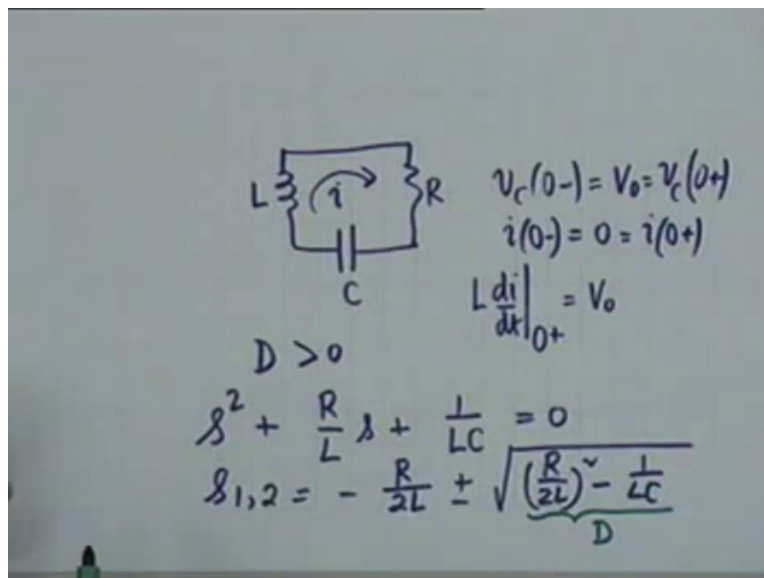 L i R
C
v_C(0-) = V_0 = v_C(0+)
i(0-) = 0 = i(0+)
L di/dt |_0+ = V_0
D > 0
s^2 + R/L s + 1/LC = 0
s_1,2 = - R/2L ± √((R/2L)^2 - 1/LC)
D